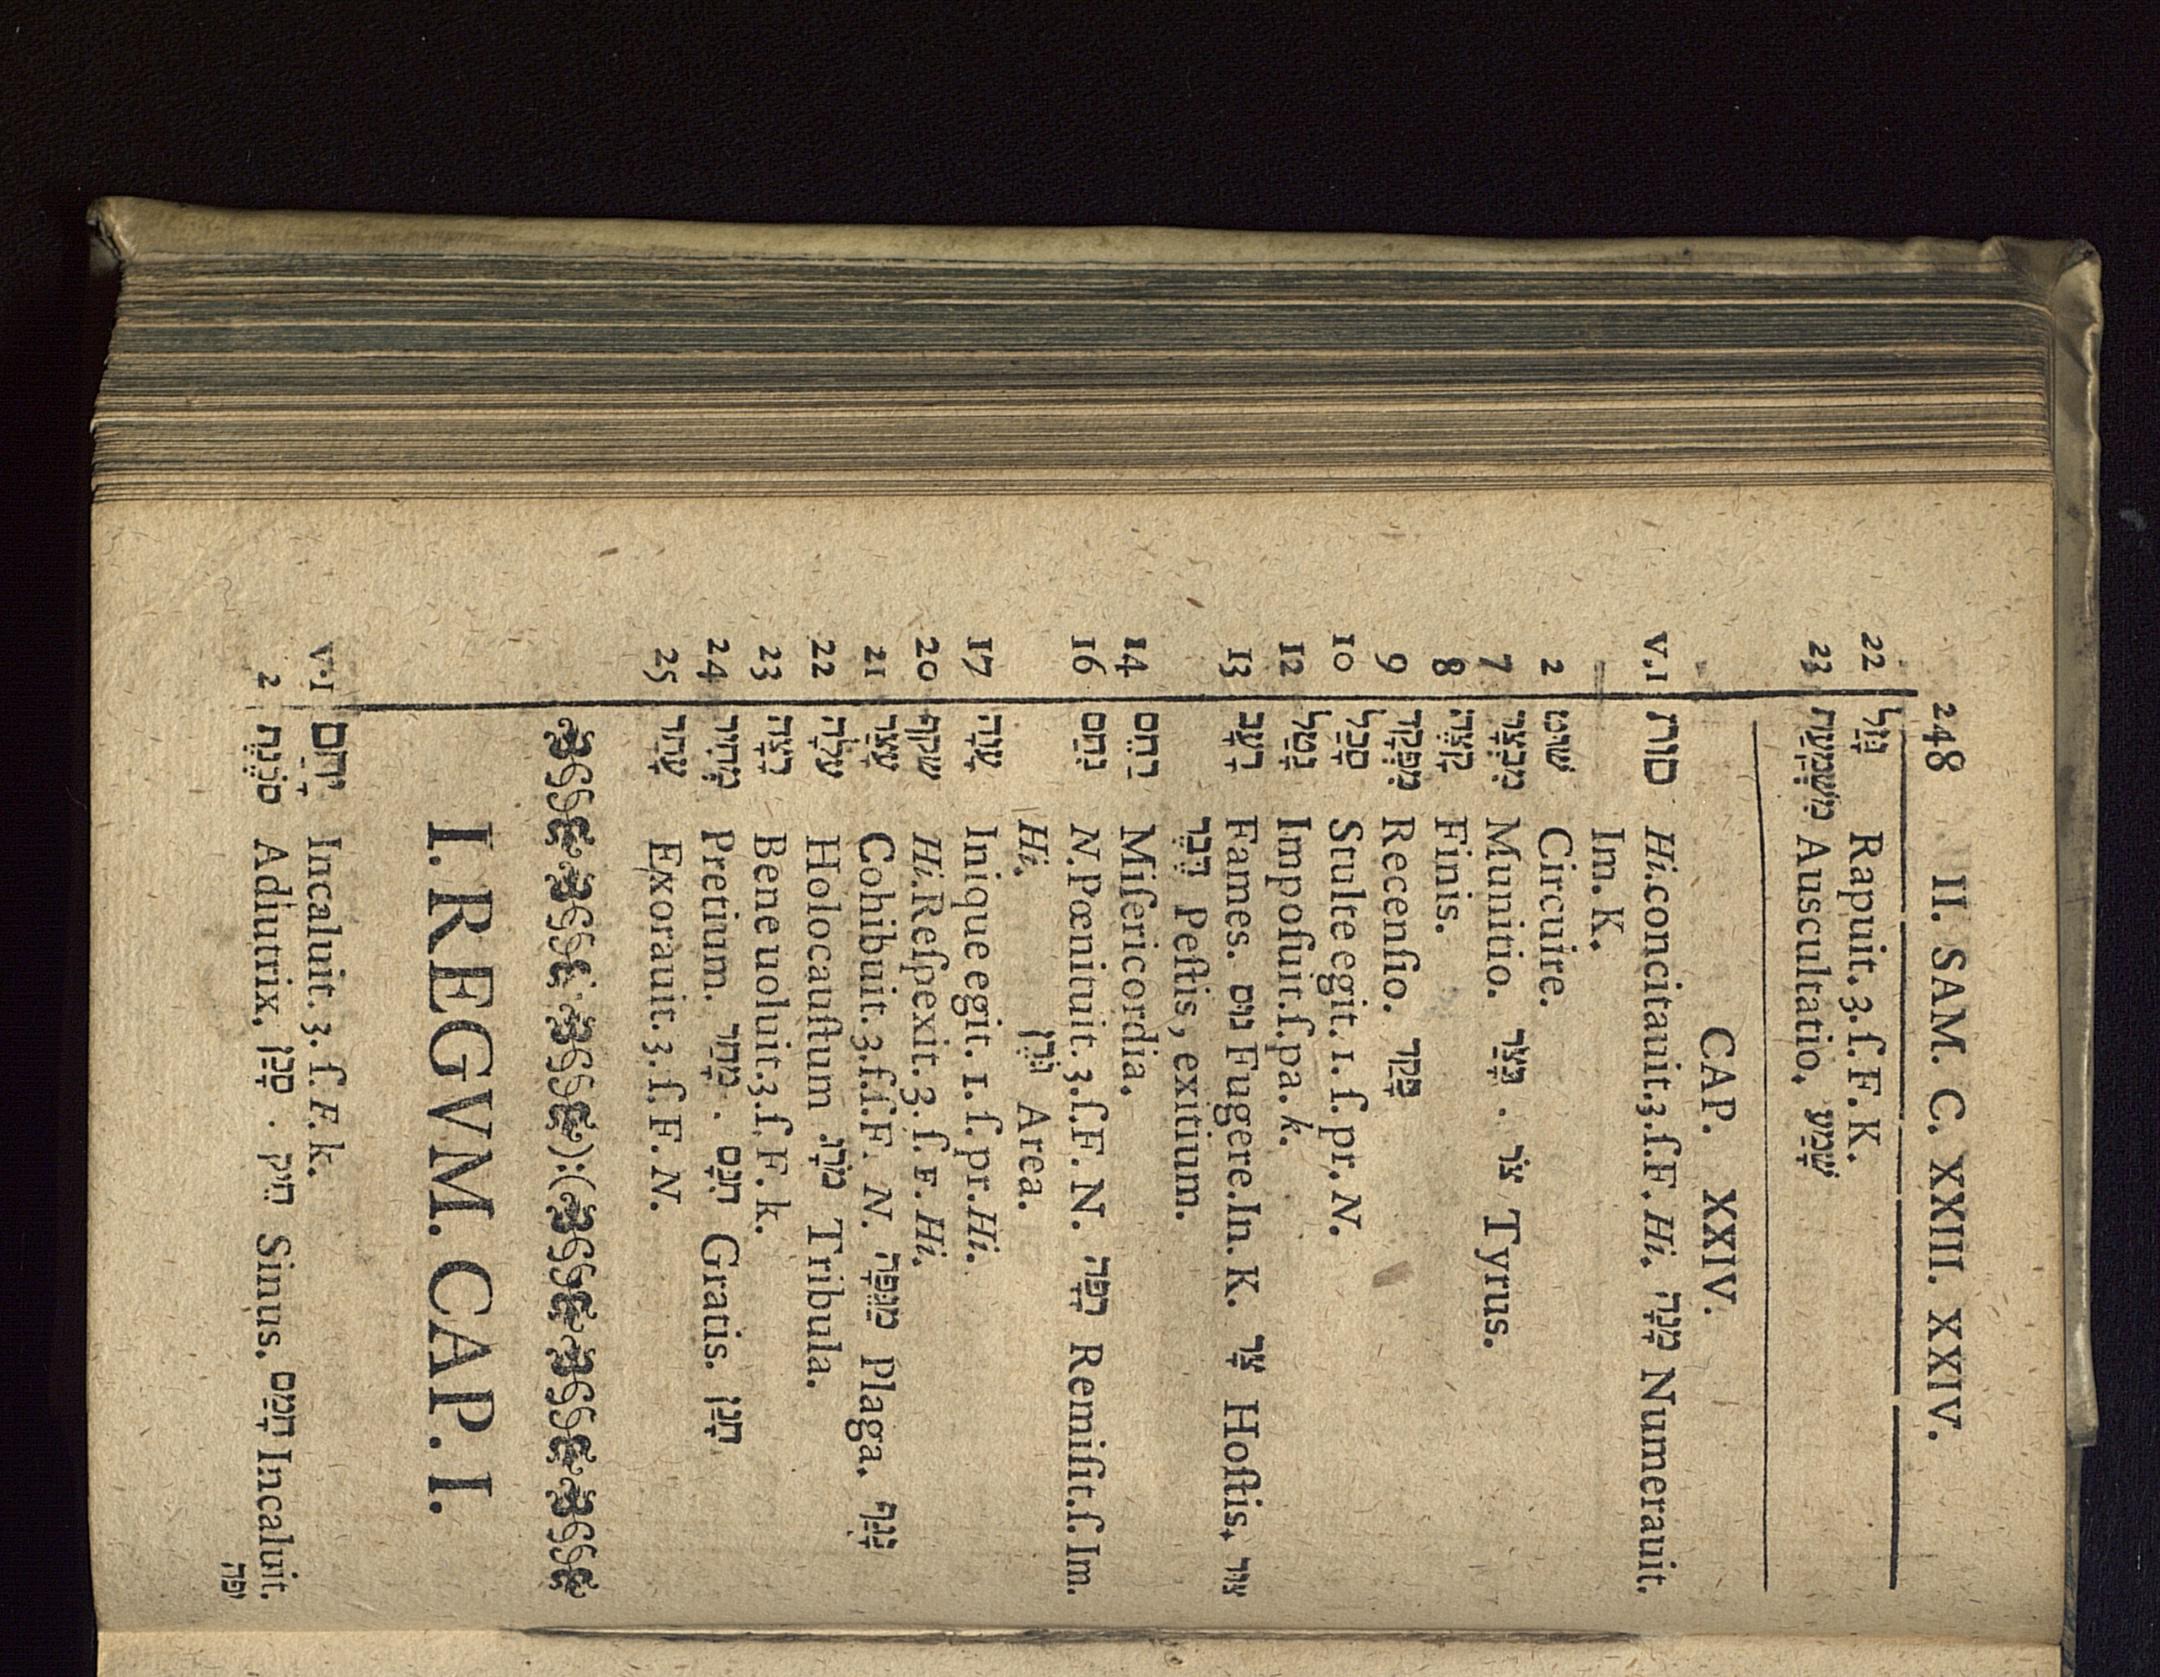 248 II. SAM. C. XXIII. XXIV.
22 גָּזַל Rapuit. 3. ſ. F. K.
23 מִשְׁמַעַת Auscultatio. שָׁמַע
CAP. XXIV.
v.1 סוּת Hi. concitauit. 3. ſ. F. Hi. מָנָה Numerauit.
Im. K.
2 שׁוּט Circuire.
7 מִבְצָר Munitio. בָּצַר . צֹר Tyrus.
8 קָצֶה Finis.
9 מִפְקָד Recenſio. פָּקַד
10 סָכַל Stulte egit. 1. ſ. pr. N.
12 נָטַל Impoſuit. ſ. pa. k.
13 רָעָב Fames. נוּס Fugere. In. K. צָר Hoſtis, צוּר
דֶּבֶר Peſtis, exitium.
14 רַחַם Miſericordia.
16 נָחַם N. Pœnituit. 3. ſ. F. N. רָפָה Remiſit. ſ. Im.
Hi. גֹּרֶן Area.
17 עָוָה Inique egit. 1. ſ. pr. Hi.
20 שָׁקַף Hi. Reſpexit. 3. ſ. F. Hi.
21 עָצַר Cohibuit. 3. ſ. ſ. F. N. מַגֵּפָה Plaga. נָגַף
22 עֹלָה Holocauſtum מוֹרַג Tribula.
23 רָצָה Bene uoluit. 3. ſ. F. k.
24 מְחִיר Pretium. מָחַר . חִנָּם Gratis. חָנַן
25 עָתַר Exorauit. 3. ſ. F. N.
I. REGVM. CAP. I.
v.1 יָחַם Incaluit. 3. ſ. F. k.
2 סֹכֶנֶת Adiutrix. סָכַן . חֵיק Sinus. חָמַם Incaluit.
יפה